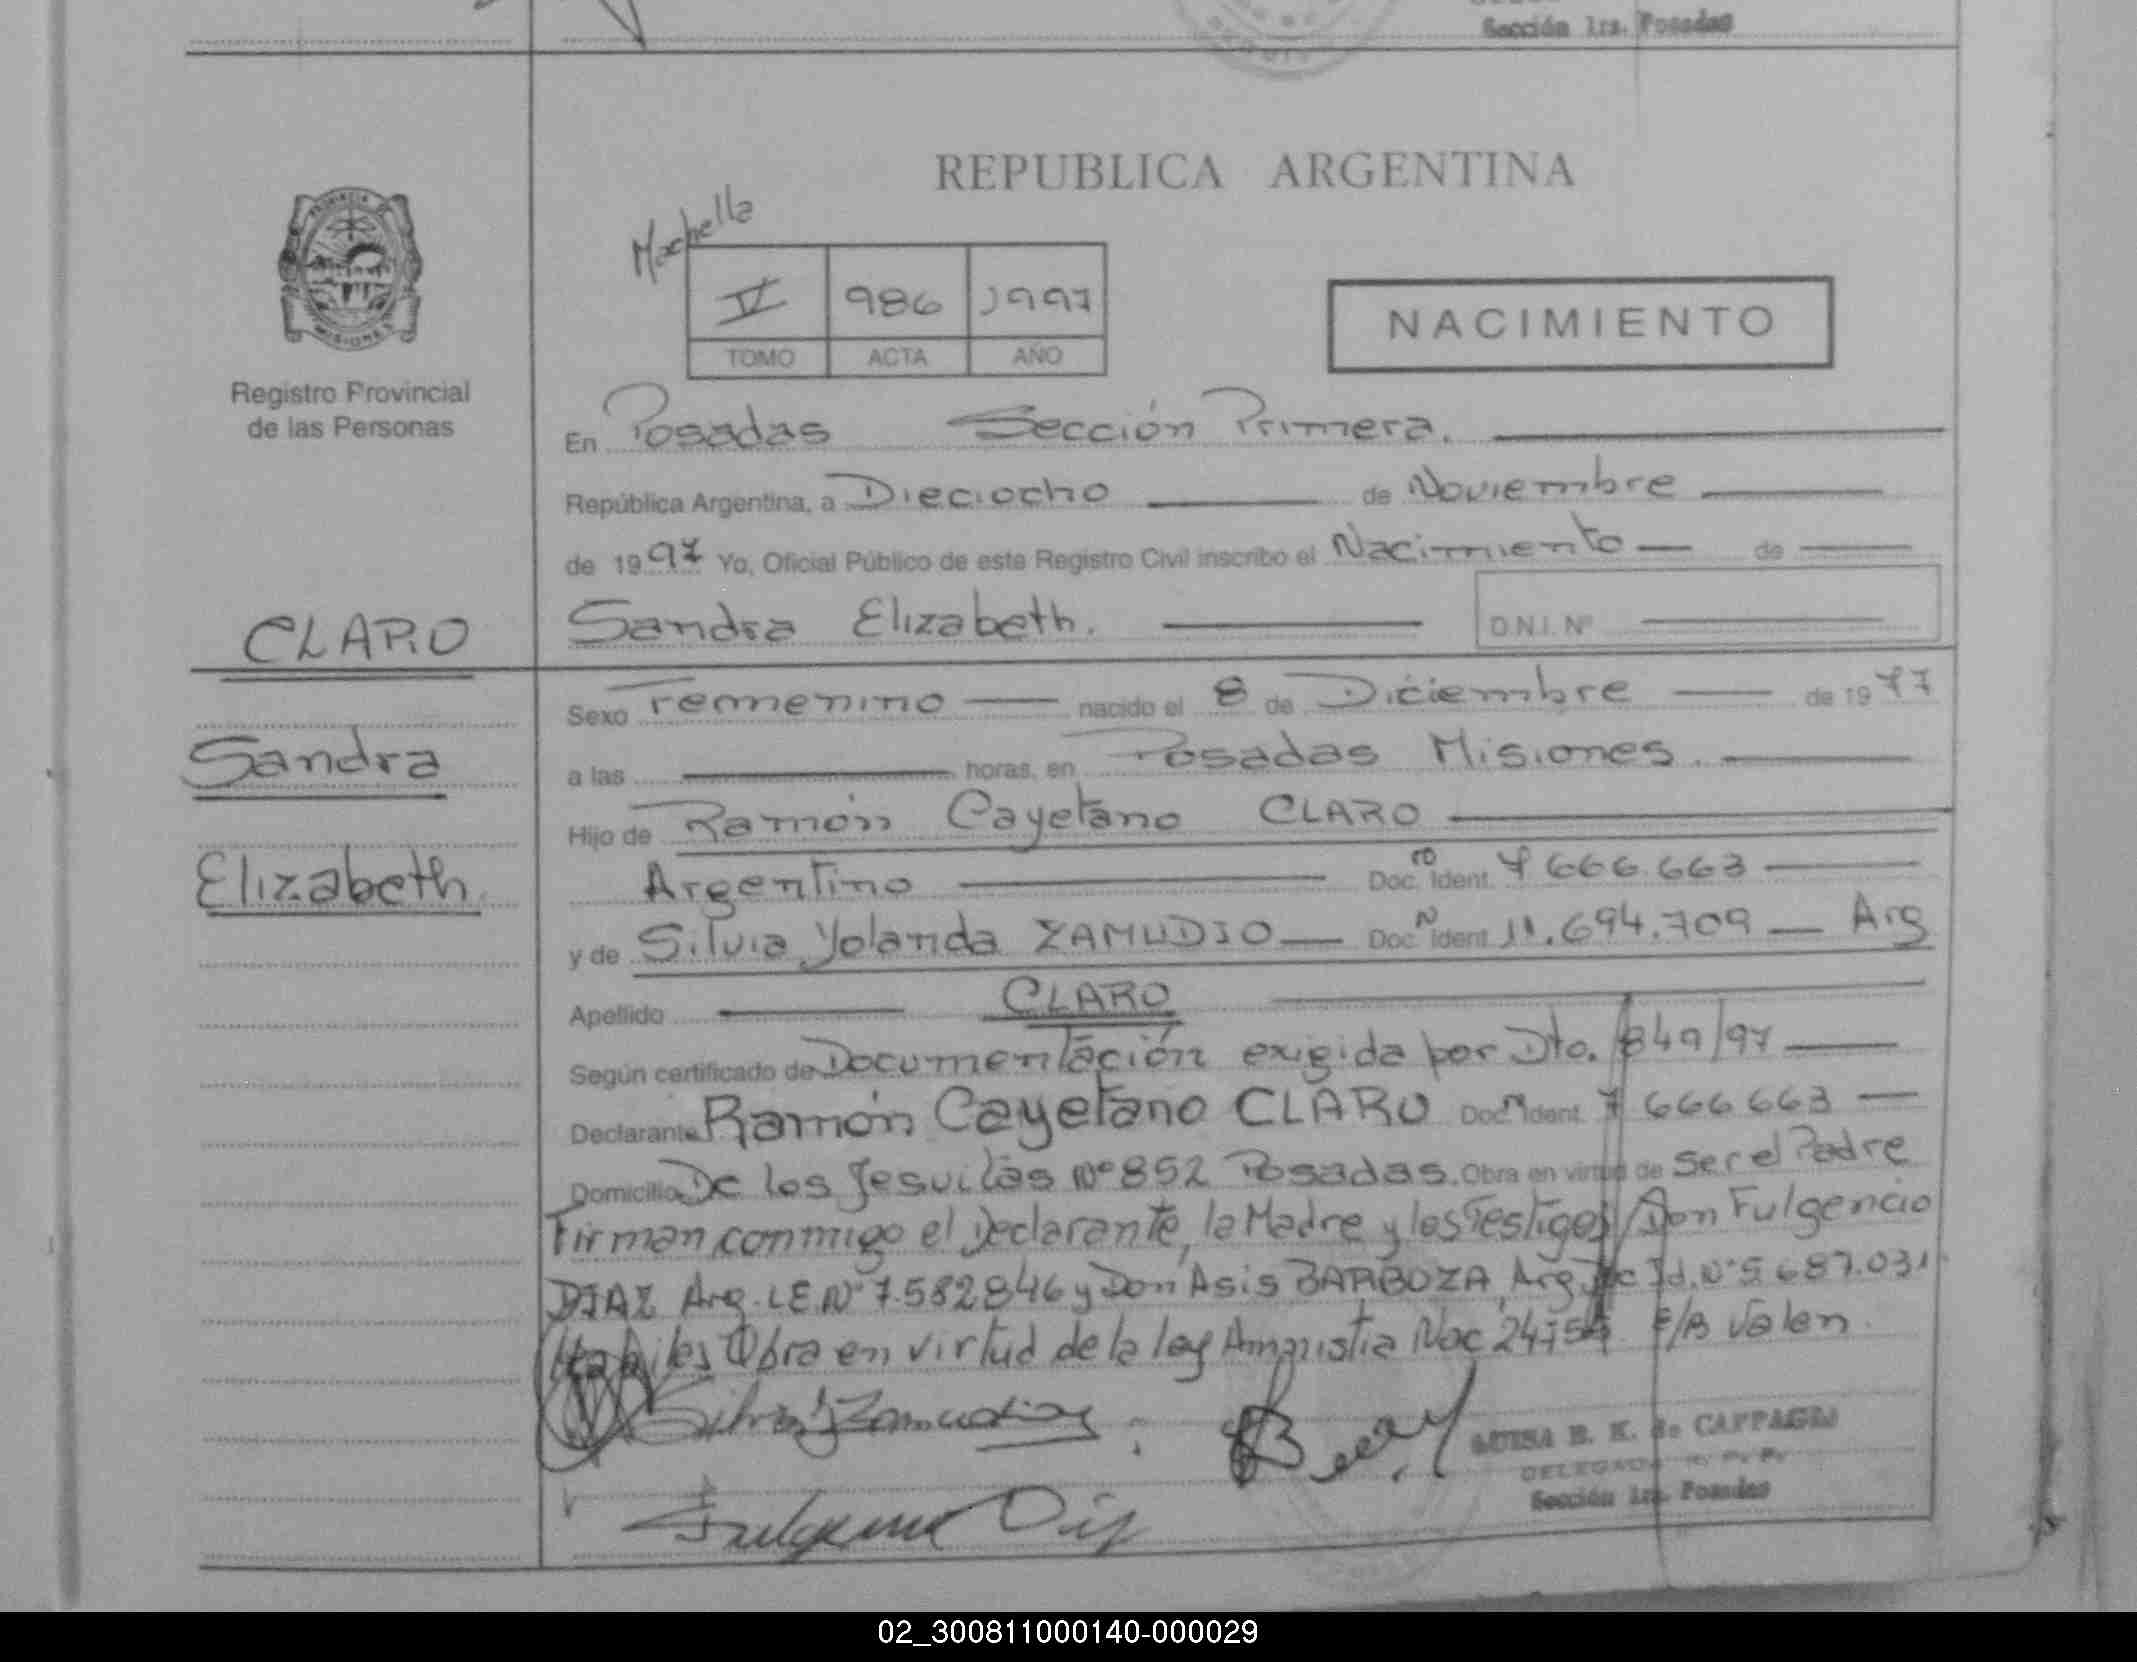 Sección 1ra. Posadas
REPUBLICA ARGENTINA
Machella
IV 986 1997
TOMO ACTA AÑO
NACIMIENTO
PROVINCIA DE
MISIONES
Registro Provincial
de las Personas
En Posadas Sección Primera.
República Argentina, a Dieciocho de Noviembre
de 1997 Yo, Oficial Público de este Registro Civil inscribo el Nacimiento de
CLARO
Sandra Elizabeth. D.N.I. Nº
Sexo Femenino nacido el 8 de Diciembre de 1977
Sandra
a las horas, en Posadas Misiones.
Hijo de Ramón Cayetano CLARO
Elizabeth.
Argentino Doc. Ident. 7 666.663
y de Silvia Yolanda ZAMUDIO Doc. Ident. 11.694.709 Arg
Apellido CLARO
Según certificado de Documentación exigida por Dto. 849/97
Declarante Ramón Cayetano CLARO Doc. Ident. 7 666 663
Domicilio De los Jesuitas Nº 852 Posadas. Obra en virtud de ser el Padre
Firman conmigo el Declarante, la Madre y los Testigos Don Fulgencio
DIAZ Arg. L.E. Nº 7.582846 y Don Asis BARBOZA, Arg. Doc Id. Nº 5.687.031
Habiles Obra en virtud de la ley Amnistia Nac E/B Valen.
Silvia Y Zamudio
LUISA B. K. de
DELEGADA
Sección 1ra. Posadas
Fulgencio Diaz
02_300811000140-000029